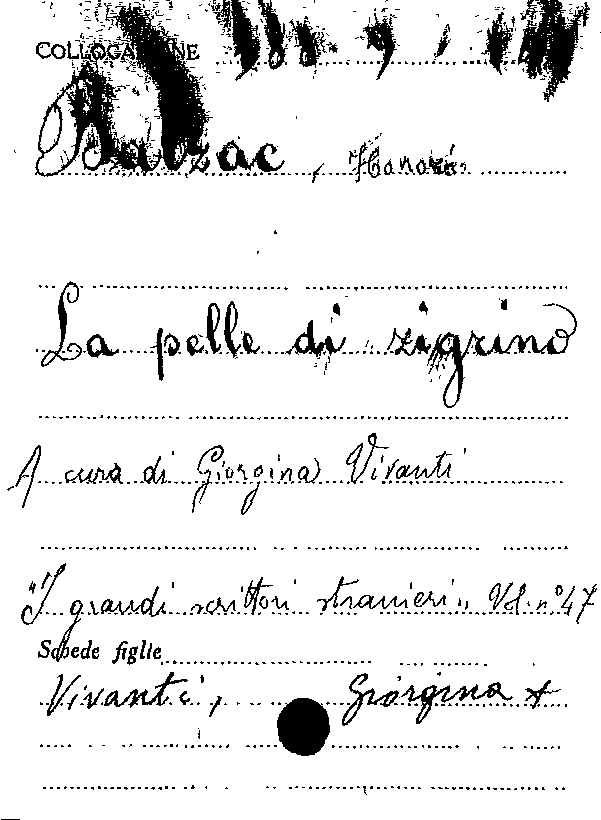 COLLOCAZIONE
Balzac, Honoré
La pelle di zigrino
A cura di Giorgina Vivanti
"I grandi scrittori stranieri" Vol. n° 47
Schede figlie
Vivanti, Giorgina +